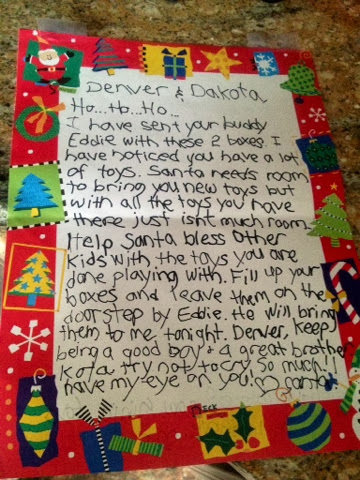 Denver & Dakota,
Ho...Ho...Ho...
I have sent your buddy
Eddie with these 2 boxes. I
have noticed you have a lot
of toys. Santa needs room
to bring you new toys but
with all the toys you have
there just isnt much room.
Help Santa bless other
kids with the toys you are
done playing with. Fill up your
boxes and leave them on the
doorstep by Eddie. He will bring
them to me tonight. Denver, keep
being a good boy & a great brother.
Kota, try not to cry so much!
have my eye on you! Santa